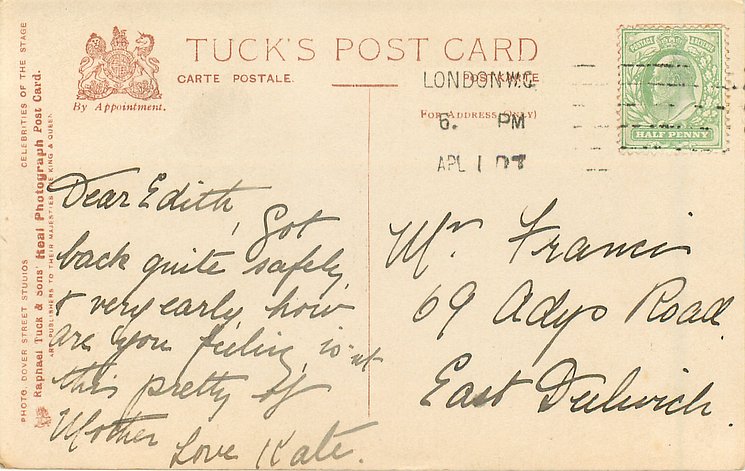 TUCK'S POST CARD
CARTE POSTALE.
POSTKARTE
By Appointment.
FOR ADDRESS ONLY)
LONDON.W.C
6. PM
APL 1 07
POSTAGE REVENUE
HALF PENNY
CELEBRITIES OF THE STAGE
PHOTO. DOVER STREET STUDIOS
Raphael Tuck & Sons' Real Photograph Post Card.
ART PUBLISHERS TO THEIR MAJESTIES THE KING & QUEEN
Dear Edith, Got
back quite safely
& very early, how
are you feeling, is-nt
this pretty of
Mother Love Kate.
Mrs Francis
69 Adys Road
East Dulwich.